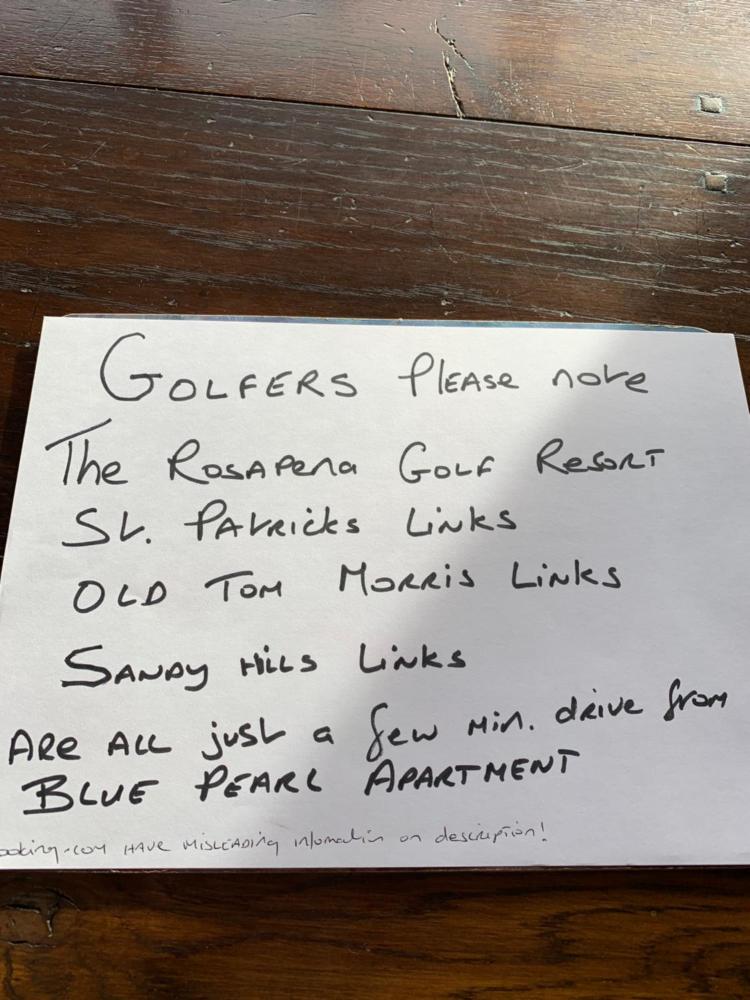 GOLFERS Please note
The Rosapena Golf Resort
St. Patricks Links
OLD TOM MORRIS LINKS
SANDY HILLS LINKS
ARE ALL just a few min. drive from
BLUE PEARL APARTMENT
ooking.com HAVE MISLEADING information on description!